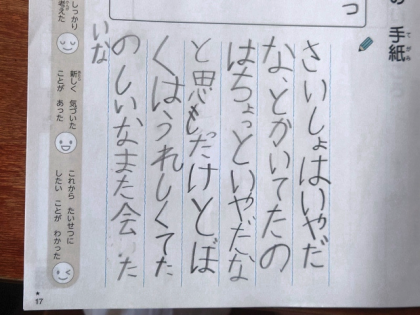 の 手紙
てがみ
つ
さいしょはいやだ
な、とかいてたの
はちょっといやだな
と思もだけとぼ
くはうれしくてた
のしいなまた会いた
いな
しっかり
考えた
新しく 気づいた
ことが あった
これから たいせつに
したい ことが わかった
17